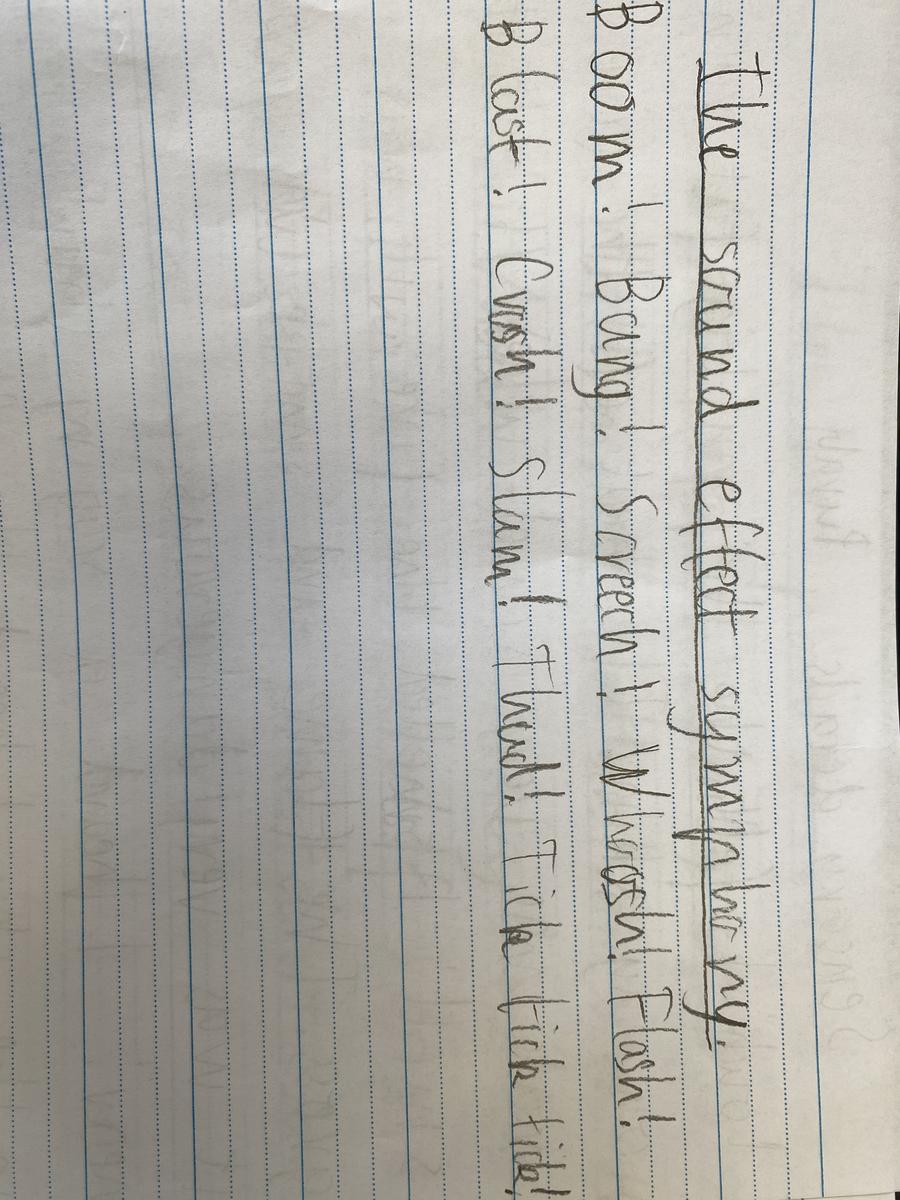 The sound effect symphony.
Boom! Bang! Screech! Whoosh! Flash!
Blast! Crash! Slam! Thud! Tick tick tick!